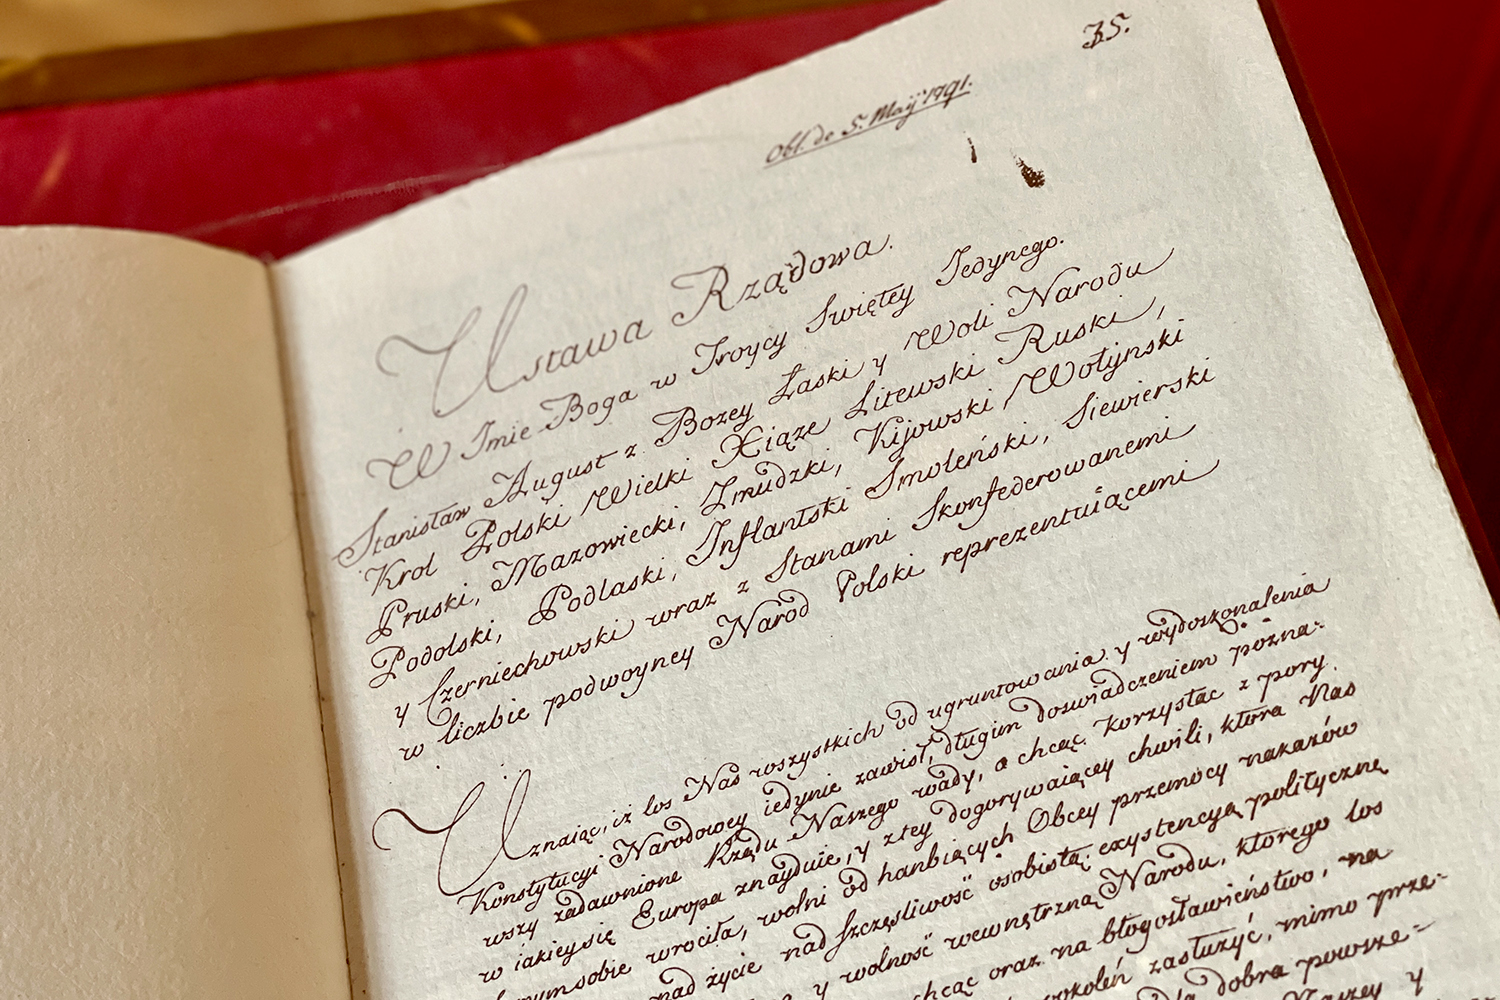 35.
Obl. de 5. Maÿ 1791.
Ustawa Rządowa.
W Imie Boga w Troycy Swiętey Jedynego.
Stanisław August z Bozey Łaski y Woli Narodu
Krol Polski Wielki Xiąze Litewski Ruski,
Pruski, Mazowiecki, Zmudzki, Kijowski Wołynski
Podolski, Podlaski, Inflantski Smoleński, Siewierski
y Czerniechowski wraz z Stanami Skonfederowanemi
w liczbie podwoyney Narod Polski reprezentuiącemi
Uznaiąc, iz los Nas wszystkich od ugruntowania y wydoszonalenia
Konstytucyi Narodowey iedynie zawisł, długim doswiadczeniem pozna-
wszy zadawnione Rządu Naszego wady, a chcąc korzystac z pory
w iakiey się Europa znayduie, y z tey dogorywaiącey chwili, ktora Nas
samym sobie wrociła, wolni od hanbiących Obcey przemocy nakazów
nad życie nad szczęsliwosć osobistą exystencyą polityczną
y wolnosć wewnętrzną Narodu, ktorego los
chcąc oraz na błogosławieństwo, na
pokoleń zasłużyć, mimo prze-
dla dobra powsze-
Naszey y